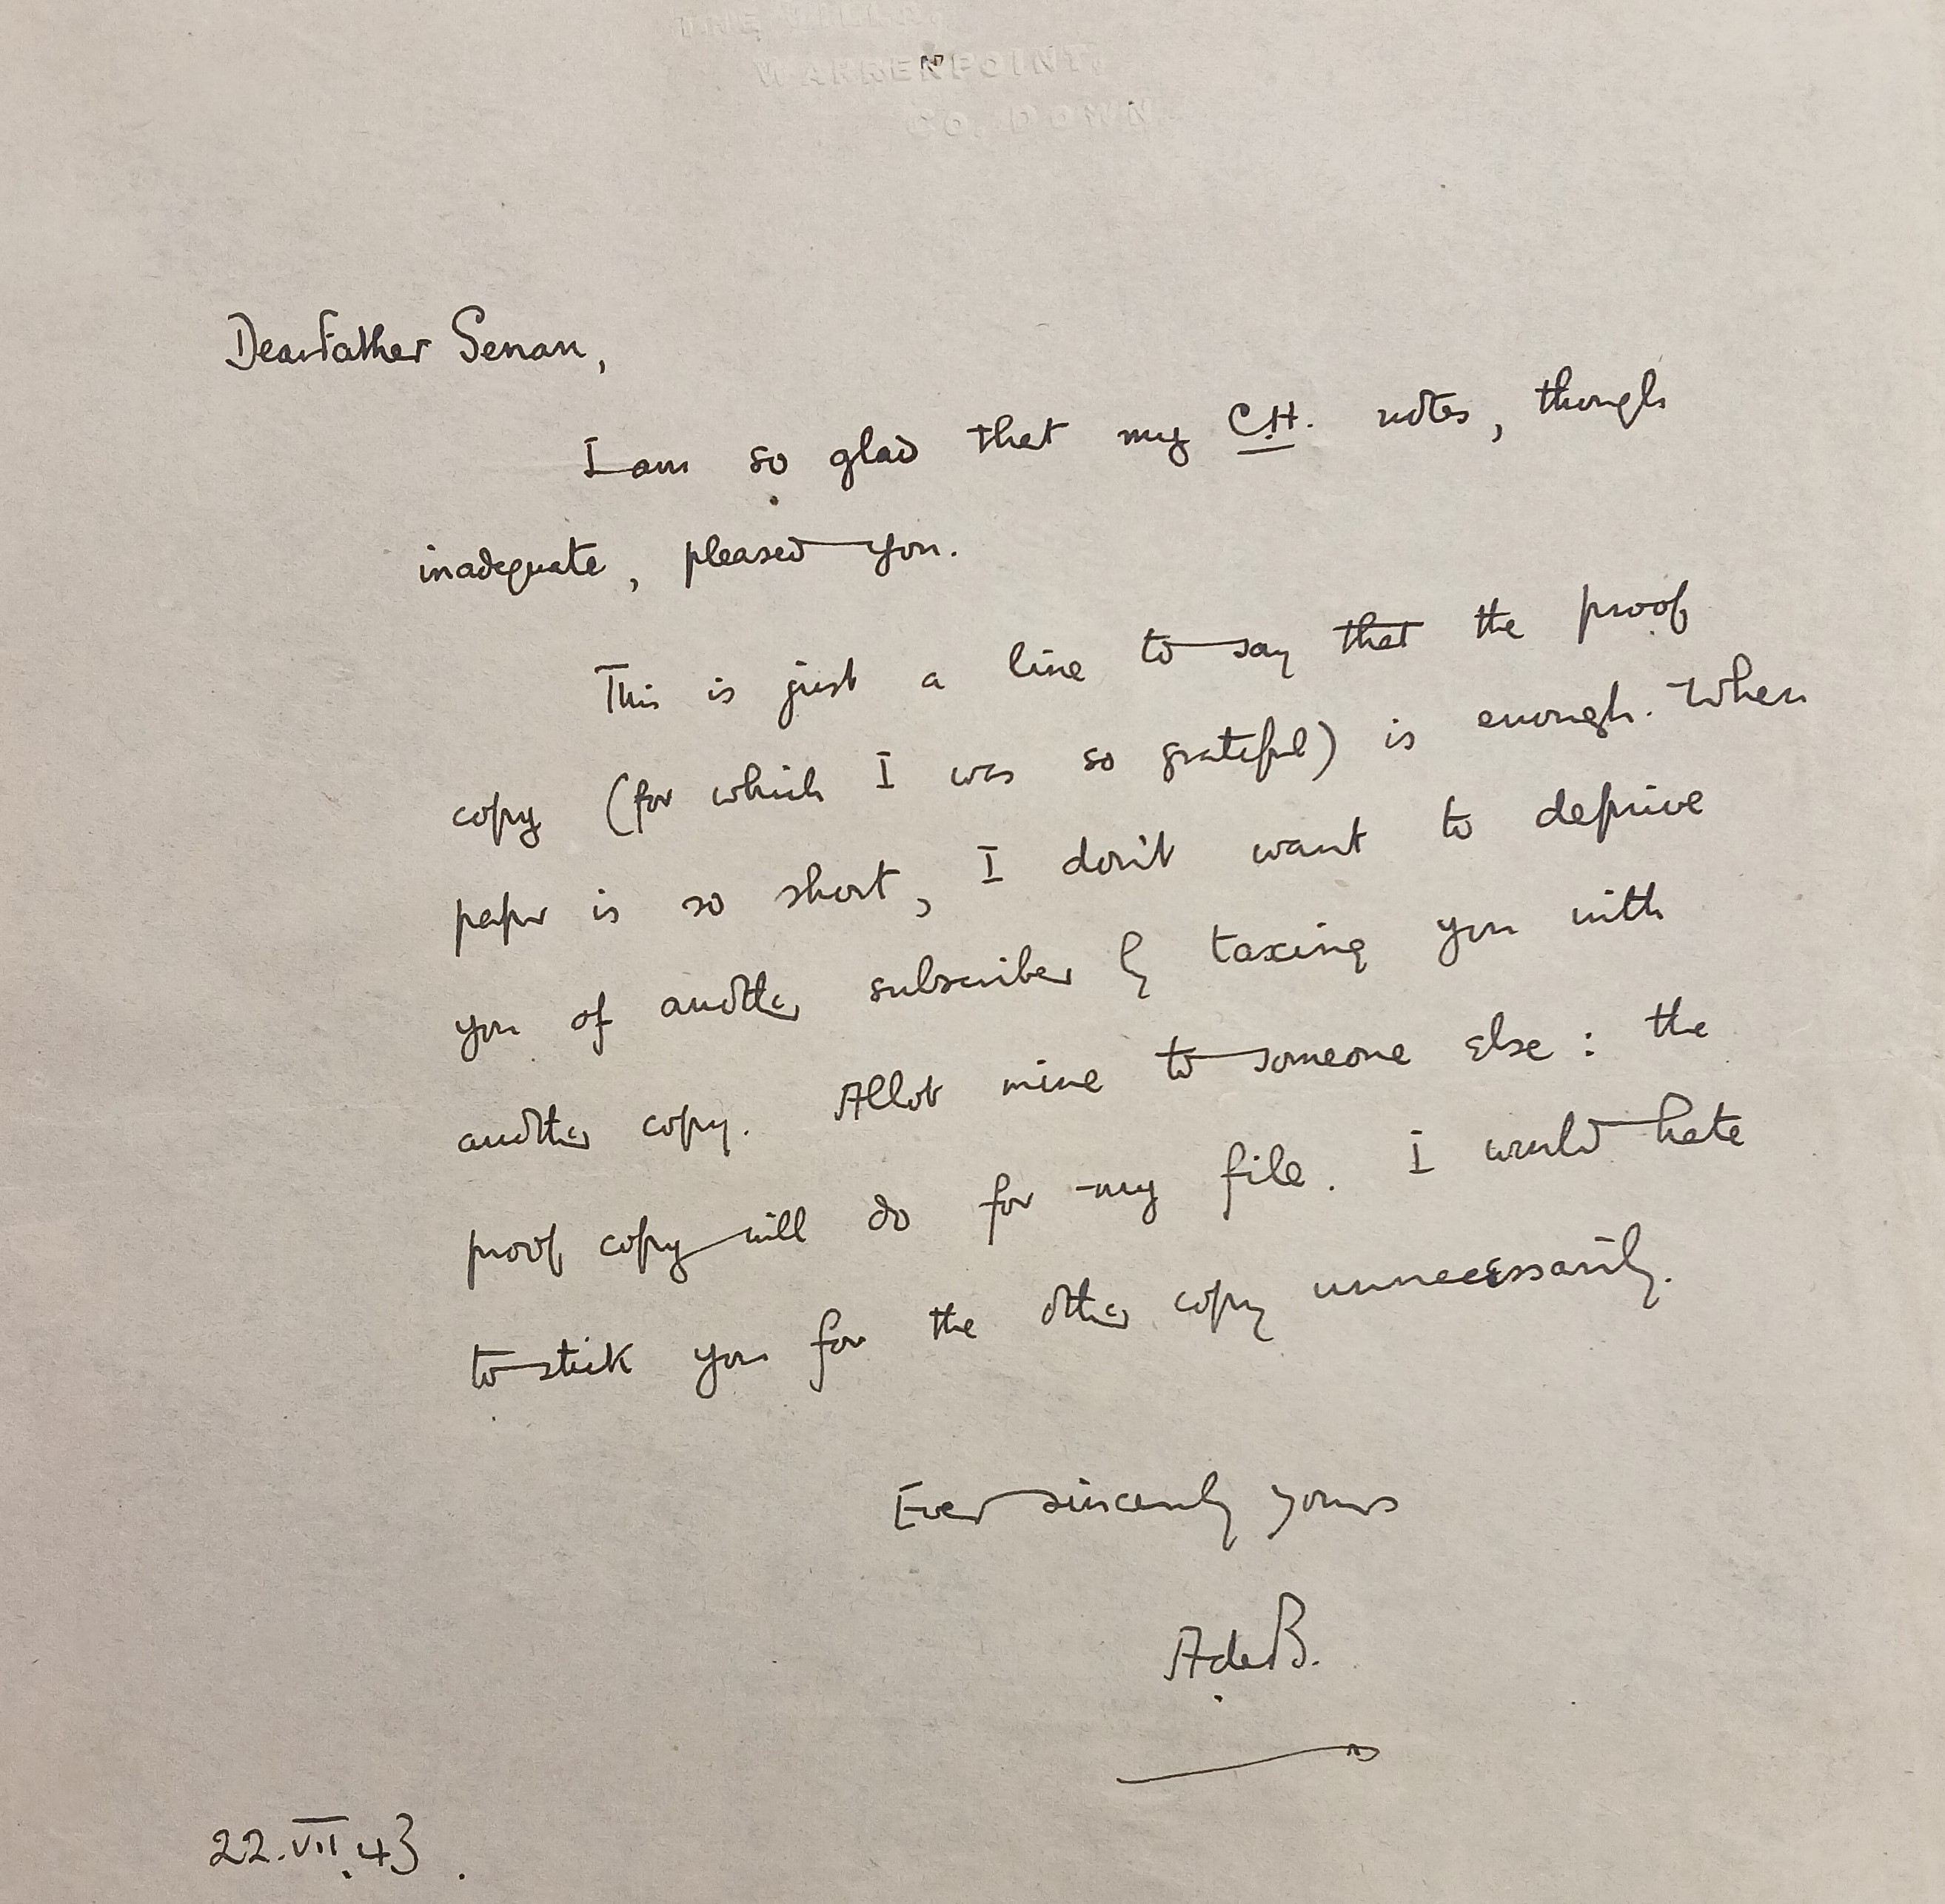 THE VILLA,
WARRENPOINT,
CO. DOWN.
Dear Father Senan,
I am so glad that my C.H. notes, though
inadequate, pleased you.
This is just a line to say that the proof
copy (for which I was so grateful) is enough. When
paper is so short, I don't want to deprive
you of another subscriber by taxing you with
another copy. Allot mine to someone else: the
proof copy will do for my file. I would hate
to stick you for the other copy unnecessarily.
Ever sincerely yours
A de B.
22.VII.43.